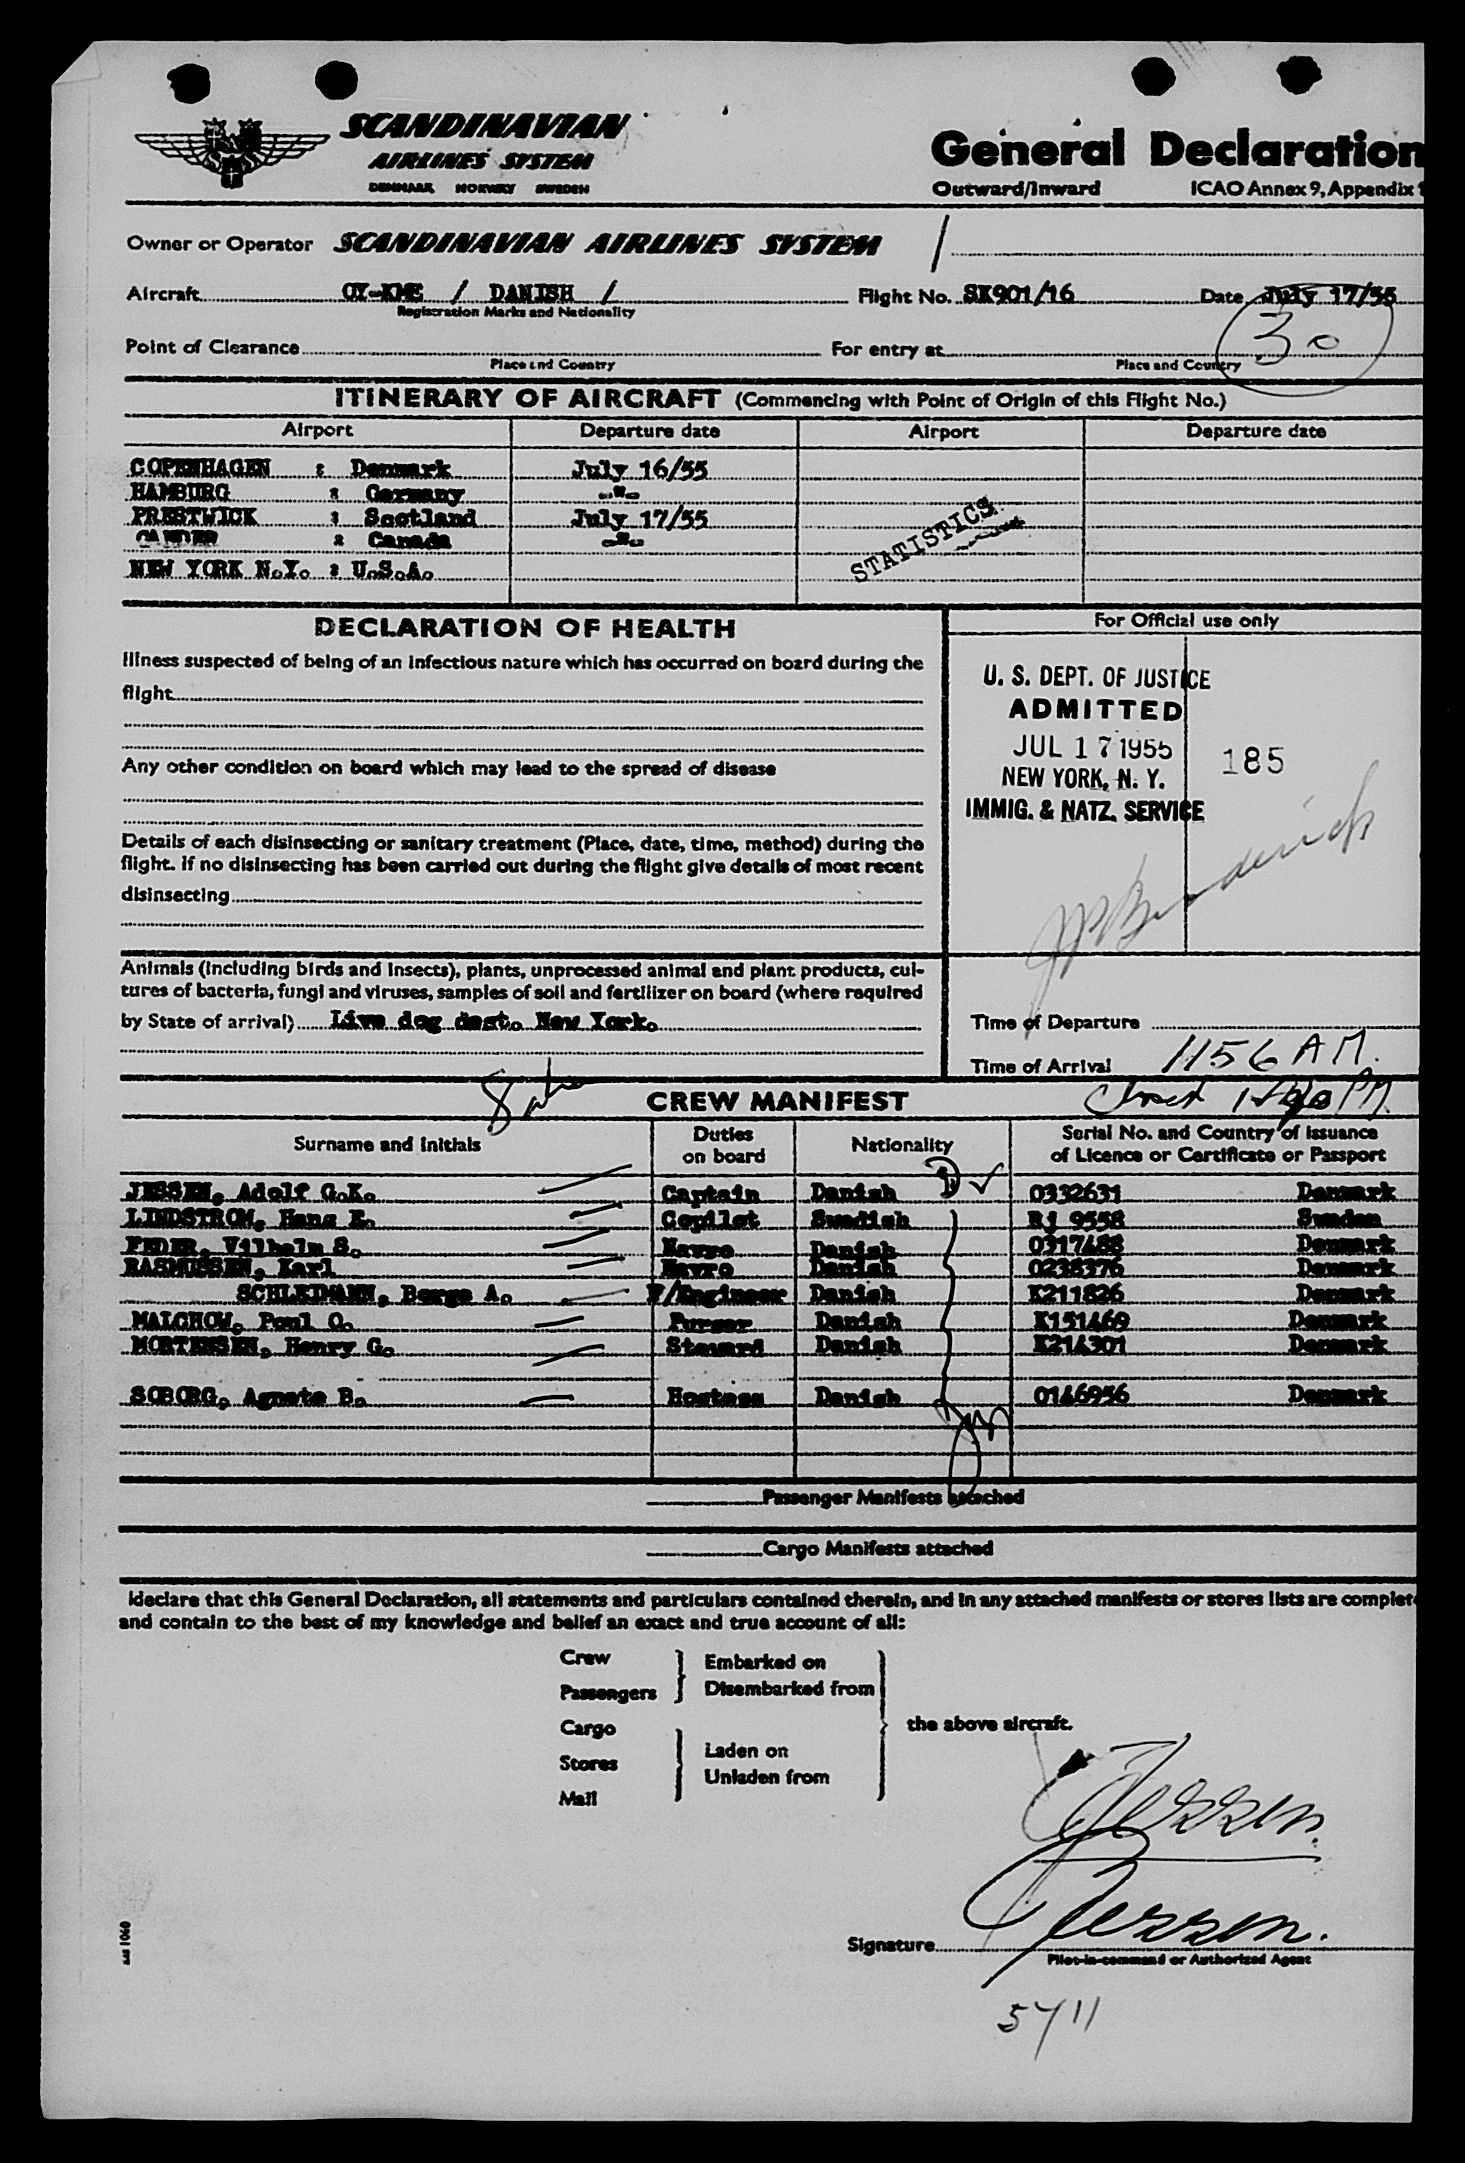 SCANDINAVIAN
AIRLINES SYSTEM
DENMARK NORWAY SWEDEN
General Declaration
Outward/Inward ICAO Annex 9, Appendix 1
Owner or Operator SCANDINAVIAN AIRLINES SYSTEM
Aircraft OY-KME / DANISH / Flight No. SK901/16 Date July 17/55
Registration Marks and Nationality
30
Point of Clearance For entry at
Place and Country Place and Country
ITINERARY OF AIRCRAFT (Commencing with Point of Origin of this Flight No.)
Airport Departure date Airport Departure date
COPENHAGEN : Denmark July 16/55
HAMBURG : Germany -"-
PRESTWICK : Scotland July 17/55
GANDER : Canada -"-
NEW YORK N.Y. : U.S.A.
STATISTICS
DECLARATION OF HEALTH
Illness suspected of being of an infectious nature which has occurred on board during the
flight
Any other condition on board which may lead to the spread of disease
Details of each disinsecting or sanitary treatment (Place, date, time, method) during the
flight. If no disinsecting has been carried out during the flight give details of most recent
disinsecting
Animals (including birds and insects), plants, unprocessed animal and plant products, cul-
tures of bacteria, fungi and viruses, samples of soil and fertilizer on board (where required
by State of arrival) Live dog dest. New York.
For Official use only
U. S. DEPT. OF JUSTICE
ADMITTED
JUL 17 1955
NEW YORK, N. Y.
IMMIG. & NATZ. SERVICE
185
Time of Departure
Time of Arrival 1156 AM.
CREW MANIFEST
Surname and Initials Duties on board Nationality Serial No. and Country of Issuance of Licence or Certificate or Passport
JESSEN, Adolf G.K. Captain Danish 0332631 Denmark
LINDSTROM, Hans E. Copilot Swedish RJ 9558 Sweden
FEDER, Vilhelm S. Navro Danish 0317488 Denmark
RASMUSSEN, Karl Navro Danish 0238376 Denmark
SCHLEIMANN, Borge A. F/Engineer Danish K211826 Denmark
MALCHOW, Poul O. Purser Danish K151469 Denmark
MORTENSEN, Henry G. Steward Danish K214301 Denmark
SOBORG, Agnete B. Hostess Danish 0146956 Denmark
Passenger Manifests attached
Cargo Manifests attached
I declare that this General Declaration, all statements and particulars contained therein, and in any attached manifests or stores lists are complete
and contain to the best of my knowledge and belief an exact and true account of all:
Crew
Passengers
Embarked on
Disembarked from
Cargo
Stores
Mail
Laden on
Unladen from
the above aircraft.
Jessen.
Jessen.
Signature
Pilot-in-command or Authorized Agent
5711
SAS 1060